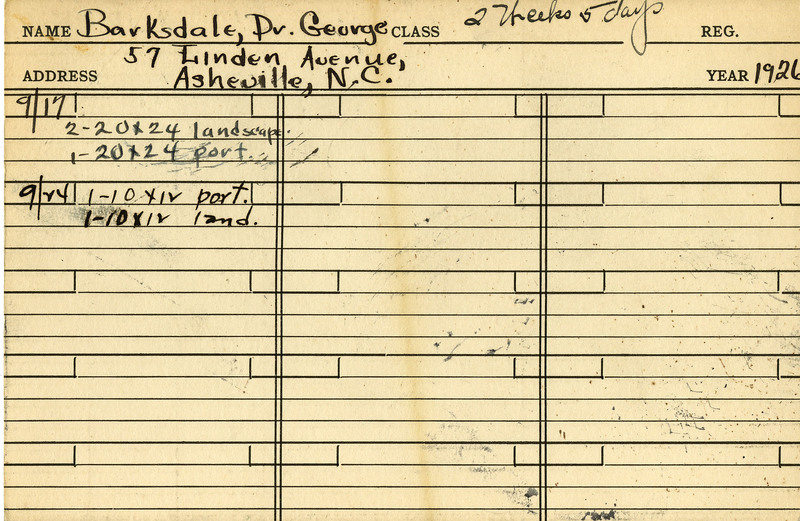 NAME Barksdale, Dr. George CLASS 2 Weeks 5 days REG.
57 Linden Avenue,
ADDRESS Asheville, N.C. YEAR 1926
9/17
2-20x24 landscape.
1-20x24 port.
9/24 1-10x12 port.
1-10x12 land.